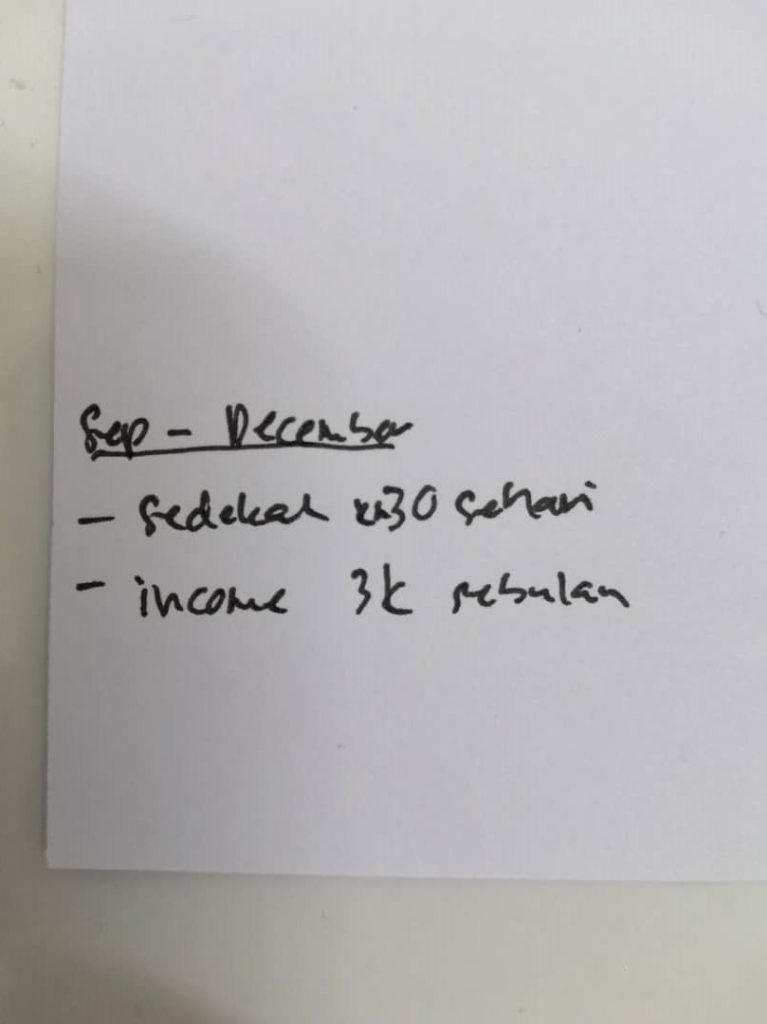 Sep - December
- sedekah rm30 sehari
- income 3k sebulan